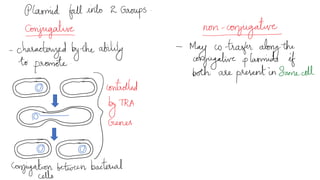 Plasmid fall into 2 Groups.
Conjugative
- characterized by the ability
to promote
controlled
by TRA
Genes
Conjugation between bacterial
cells
non-conjugative
- May co-trasfer along the
conjugative plasmid if
both are present in Same cell